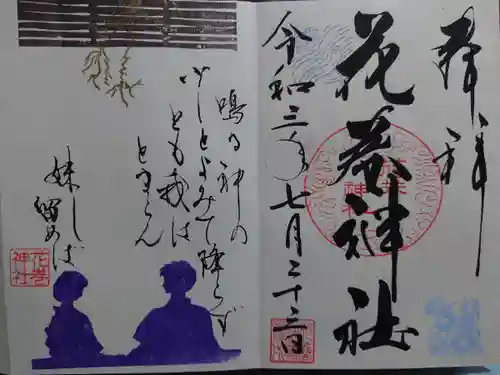 奉拝
花巻神社
令和三年七月二十三日
鳴る神の
少しとよみて降らず
とも我は
とまらん
妹し留めば
花巻神社